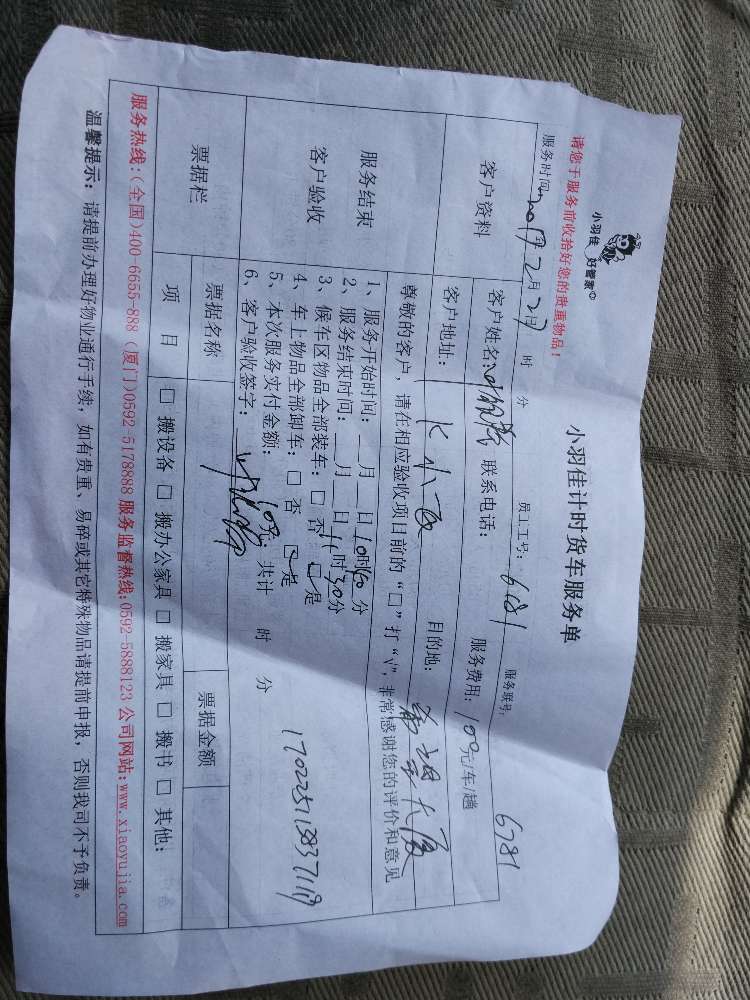 小羽佳 好管家
小羽佳计时货车服务单
请您于服务前收拾好您的贵重物品！
服务时间: 2017年2月27日 时 分 员工工号: 6781 服务联号: 6781
客户资料
客户姓名: 联系电话: 服务费用: 100元/车/趟
客户地址: 目的地: 大厦
服务结束
客户验收
尊敬的客户，请在相应验收项目前的“□”打“√”，非常感谢您的评价和意见
1、服务开始时间: __月__日10时40分
2、服务结束时间: __月__日11时30分
3、候车区物品全部装车: □ 否 □ 是
4、车上物品全部卸车: □ 否 □ 是
5、本次服务实付金额: 100元; 共计 时 分
6、客户验收签字:
170225115837119
票据栏
票据名称 票据金额
项 目 □ 搬设备 □ 搬办公家具 □ 搬家具 □ 搬书 □ 其他:
服务热线:(全国)400-6655-888 (厦门)0592-5178888 服务监督热线:0592-5888123 公司网站:www.xiaoyujia.com
温馨提示: 请提前办理好物业通行手续, 如有贵重、易碎或其它特殊物品请提前申报, 否则我司不予负责。